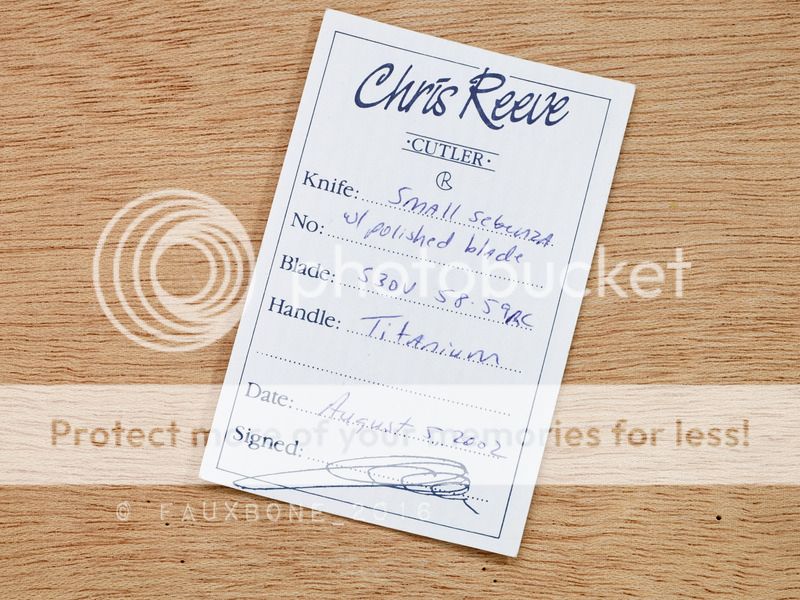 Chris Reeve
·CUTLER·
®
Knife: Small Sebenza
No: w/ polished blade
Blade: S30V 58-59RC
Handle: Titanium
Date: August 5 2002
Signed:
photobucket
Protect more of your memories for less!
© FAUXBONE_2016